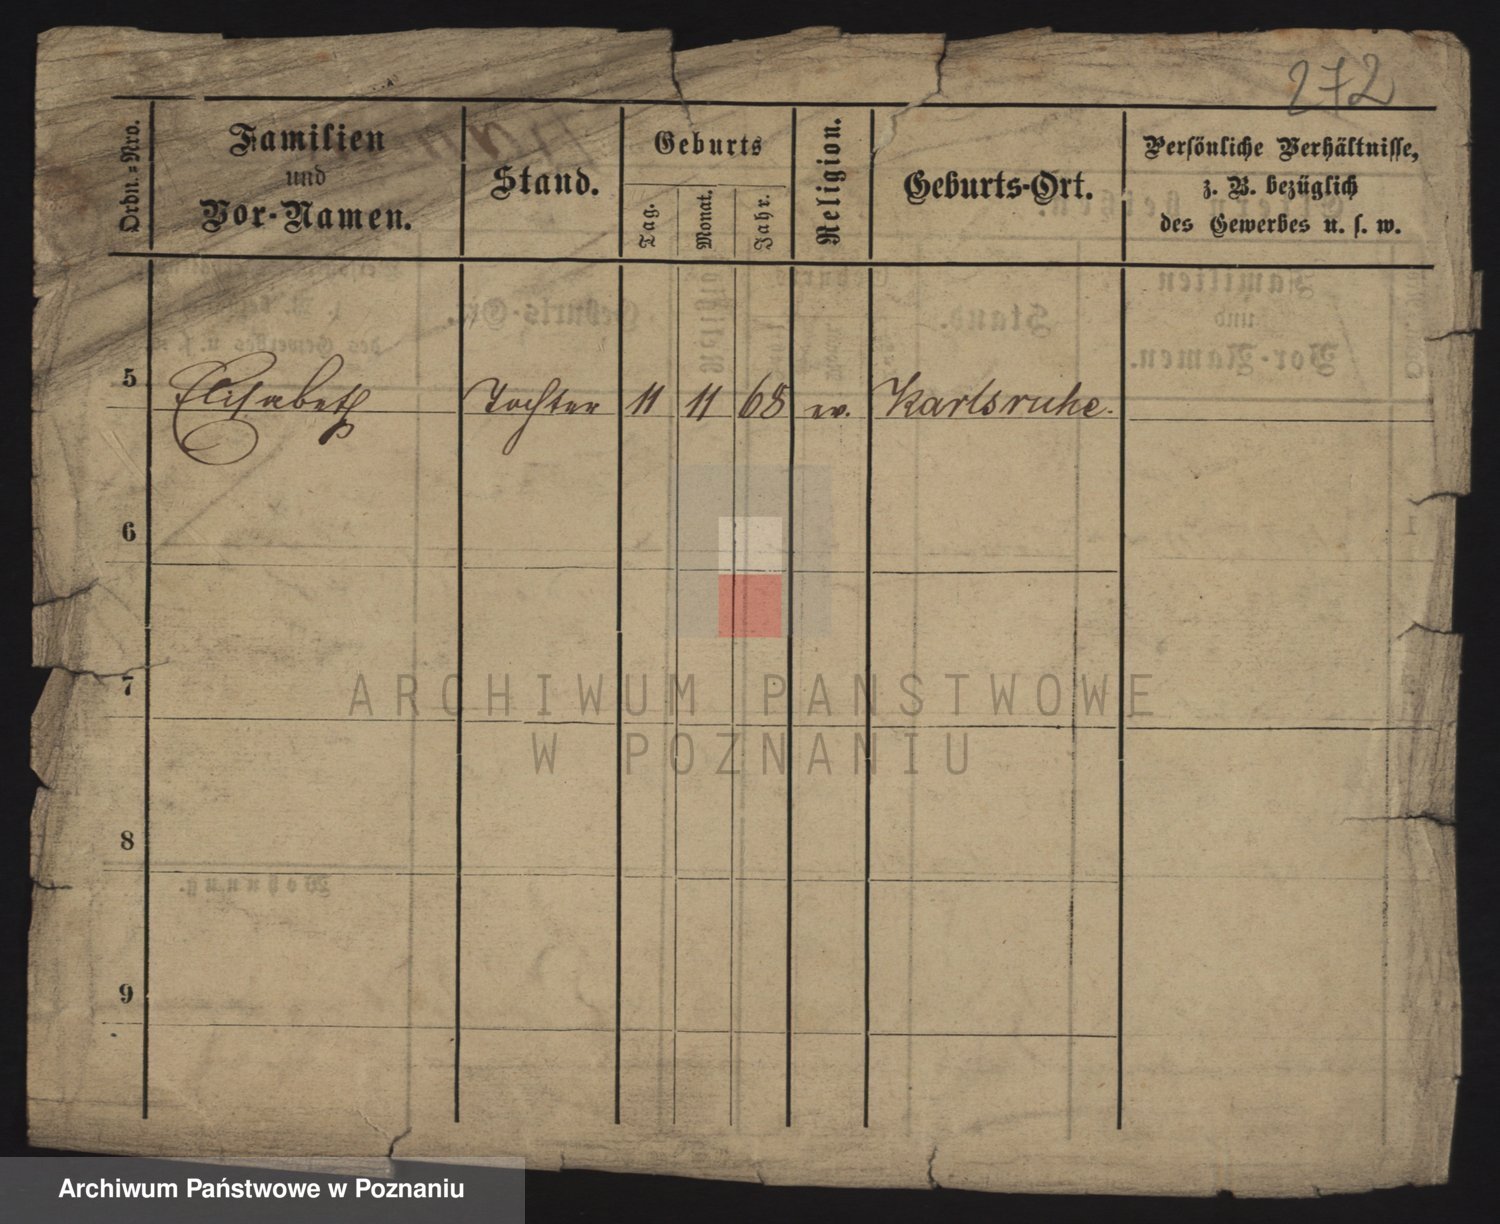 272
Ordn.-Nro.
Familien
und
Vor-Namen.
Stand.
Geburts
Tag.
Monat.
Jahr.
Religion.
Geburts-Ort.
Persönliche Verhältnisse,
z. B. bezüglich
des Gewerbes u. s. w.
5 Elisabeth Tochter 11 11 68 ev. Karlsruhe.
6
7
8
9
Wohnung.
ARCHIWUM PANSTWOWE
W POZNANIU
Archiwum Państwowe w Poznaniu